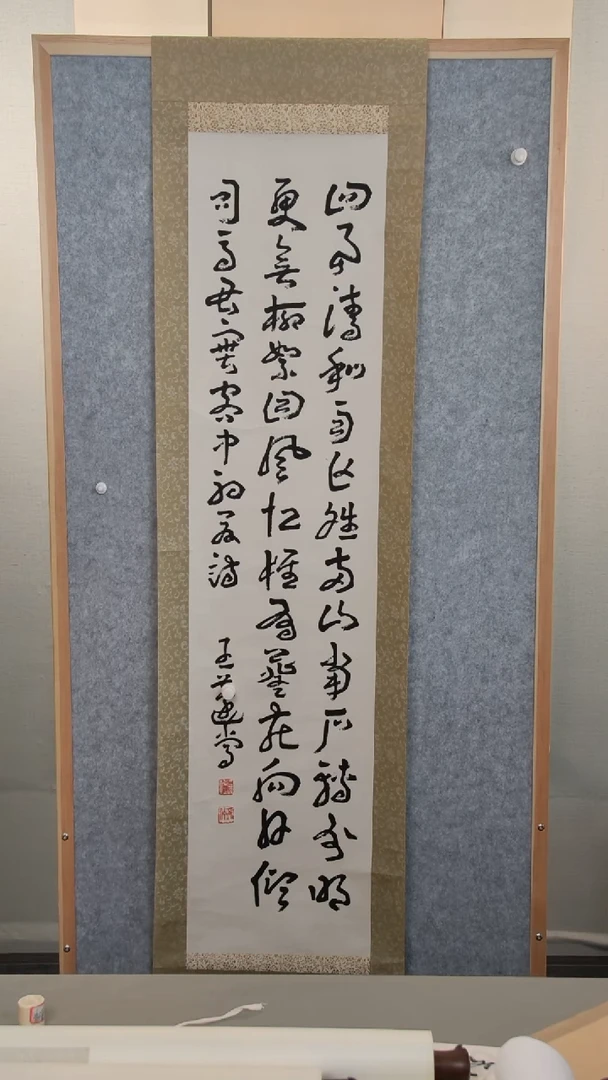 四月清和雨乍晴南山當戶轉分明
更無柳絮因風起惟有葵花向日傾
司馬君實客中初夏詩 王蘧常